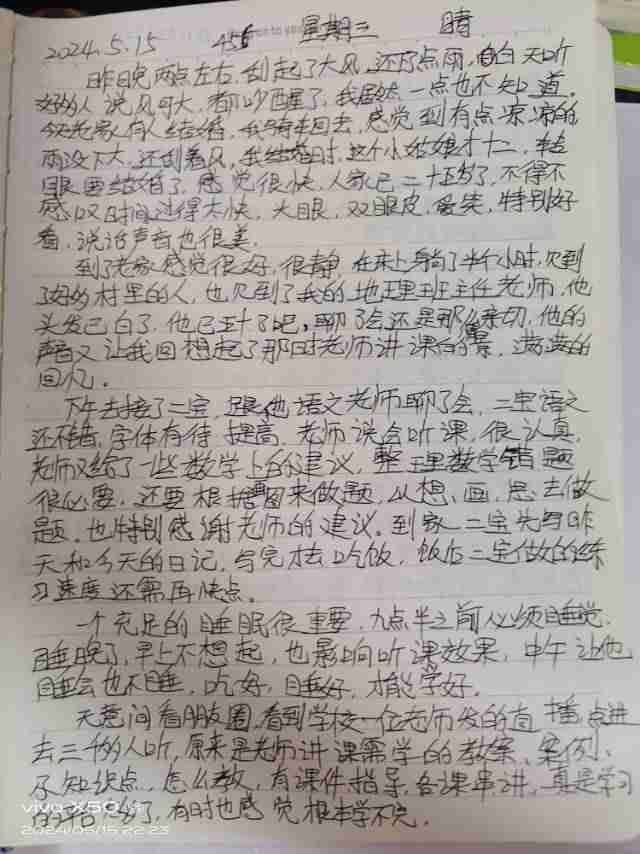 2024.5.15 456 星期三 晴
昨日晚两点左右,刮起了大风,还下了点雨,白天听
好多人说风可大,都吵醒了,我居然一点也不知道。
今天老家有人结婚,我骑车回去,感觉到有点凉凉的
雨没下大,还刮着风,我结婚时,这个小姑娘才十二,转
眼要结婚了,感觉很快,人家已二十五岁了,不得不
感叹时间过得太快,大眼,双眼皮,爱笑,特别好
看,说话声音也很美。
到了老家感觉很好,很静,在床上躺了半个小时,见到
了好多村里的人,也见到了我的地理班主任老师,他
头发已白了,他已五十了吧,聊了会还是那么亲切,他的
声音又让我回想起了那时老师讲课的情景,满满的
回忆。
下午去接了二宝,跟他语文老师聊了会,二宝语文
还不错,字体有待提高,老师说会听课,很认真,
老师又给了一些数学上的建议,整理数学错题
很必要,还要根据画图来做题,从想、画、思去做
题,也特别感谢老师的建议。到家二宝先写昨
天和今天的日记,写完才去吃饭,饭后二宝做的练
习速度还需再快点。
一个充足的睡眠很重要,九点半之前必须睡觉,
睡晚了,早上不想起,也影响听课效果,中午让他
睡会也不睡,吃好,睡好,才能学好。
无意间看朋友圈,看到学校一位老师发的直播,点进
去三千多人听,原来是老师讲课需学的教案、案例、
及知识点,怎么教,有课件指导,各课串讲,真是学习
的平台多了,有时也感觉根本学不完。
vivo X50
2024/05/15 22:23